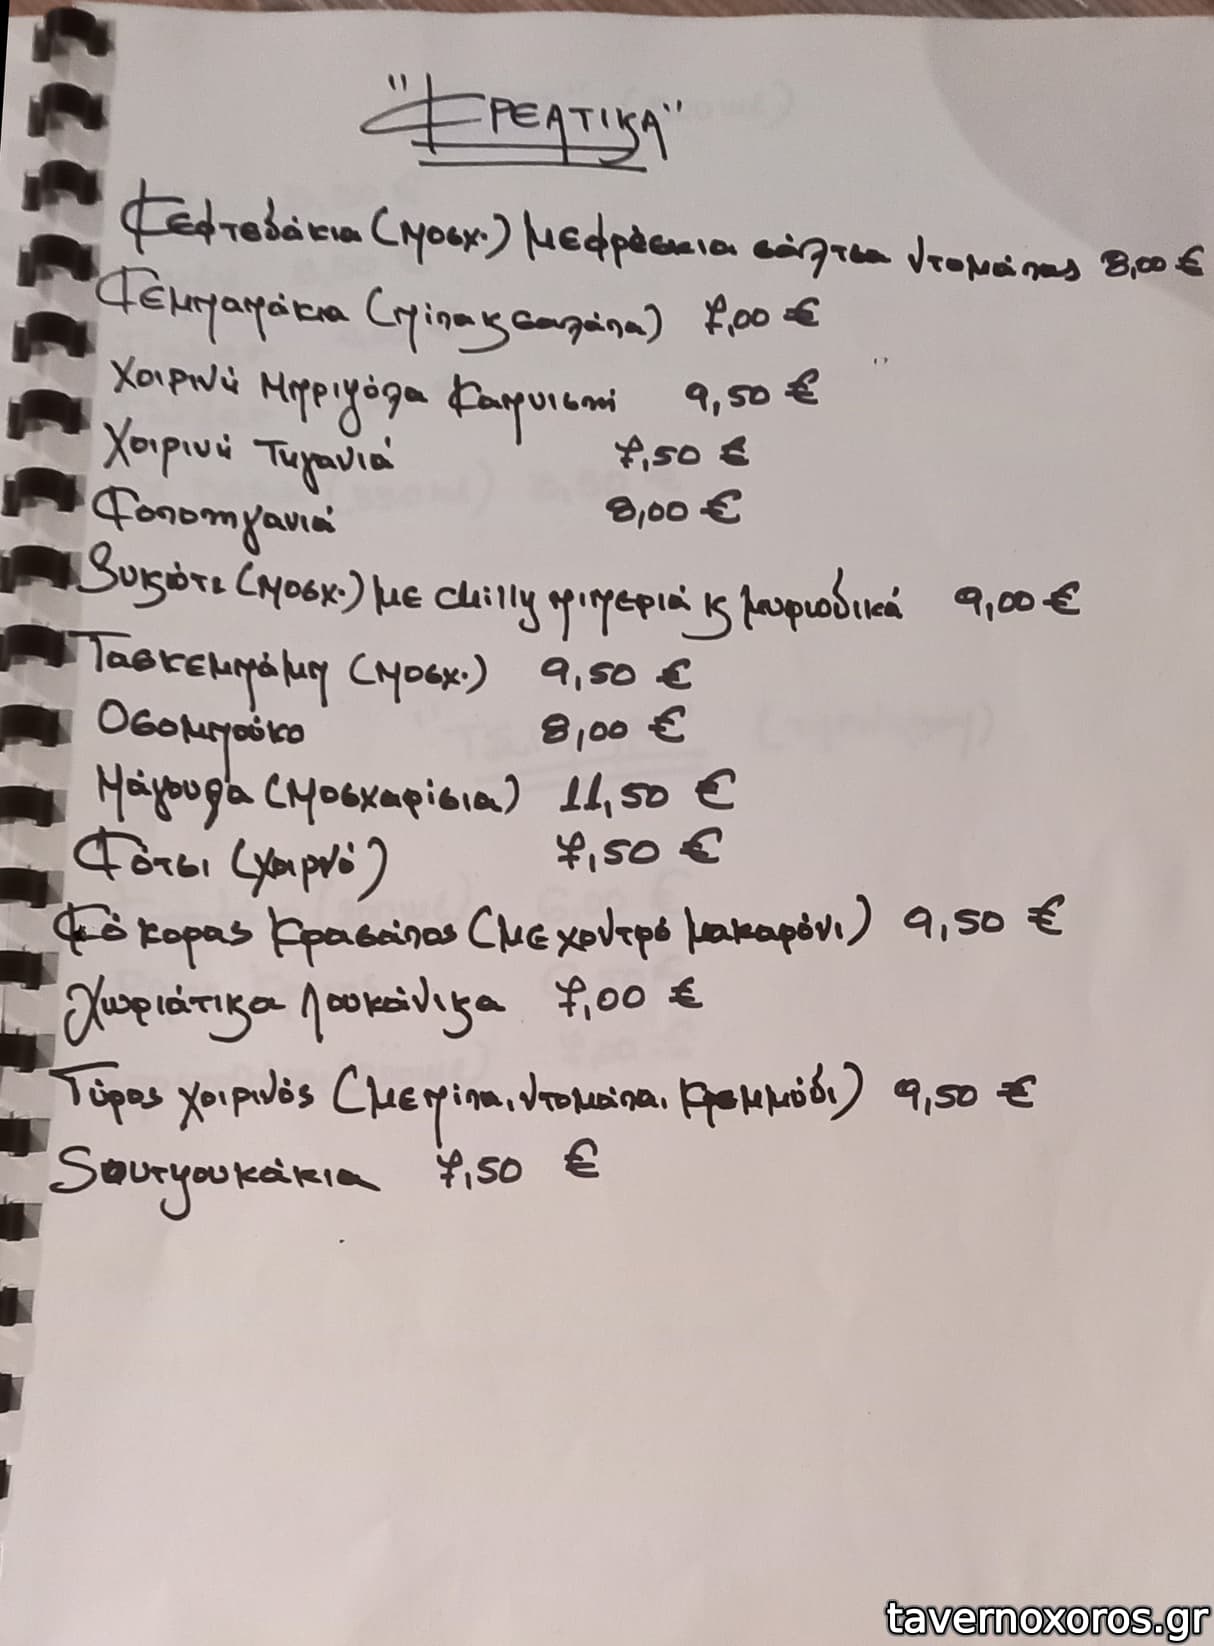 "ΚΡΕΑΤΙΚΑ"
Κεφτεδάκια (μοσχ.) με φρέσκια σάλτσα ντομάτας 8,00 €
Κεμπαπάκια (πίτα κ σαλάτα) 7,00 €
Χοιρινή Μπριζόλα Καπνιστή 9,50 €
Χοιρινή Τηγανιά 7,50 €
Κοτοτηγανιά 8,00 €
Συκώτι (μοσχ.) με chilly πιπεριά κ μυριοδικά 9,00 €
Τασκεμπάμπ (μοσχ.) 9,50 €
Οσομπούκο 8,00 €
Μάγουλα (Μοσχαρίσια) 11,50 €
Κότσι (χοιρινό) 7,50 €
Κόκορας Κρασάτος (με χοντρό μακαρόνι) 9,50 €
Χωριάτικα Λουκάνικα 7,00 €
Γύρος χοιρινός (με πίτα, ντομάτα, κρεμμύδι) 9,50 €
Σουτζουκάκια 7,50 €
tavernoxoros.gr